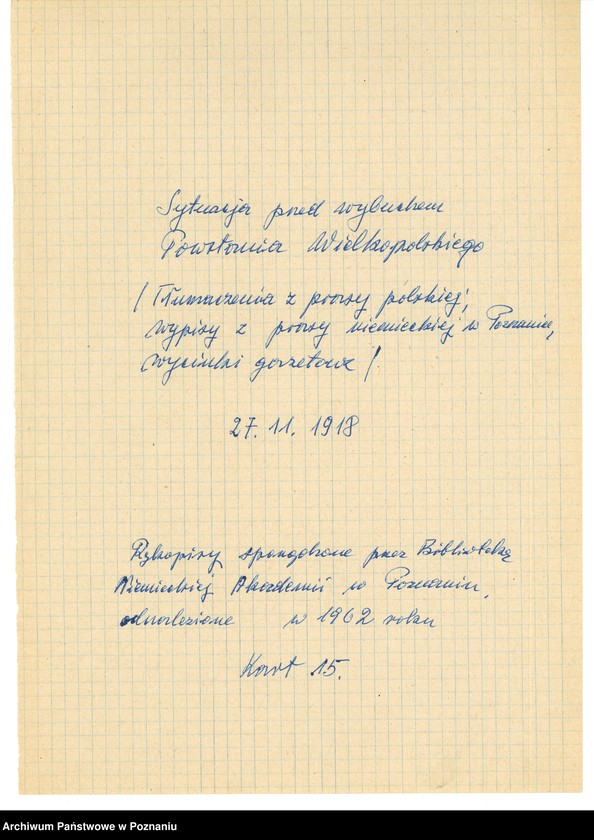 Sytuacja przed wybuchem
Powstania Wielkopolskiego
/Tłumaczenia z prasy polskiej,
wypisy z prasy niemieckiej w Poznaniu,
wycinki gazetowe/
27. 11. 1918
Rękopisy sporządzone przez Bibliotekę
Niemieckiej Akademii w Poznaniu,
odnalezione w 1962 roku
Kart 15.
Archiwum Państwowe w Poznaniu